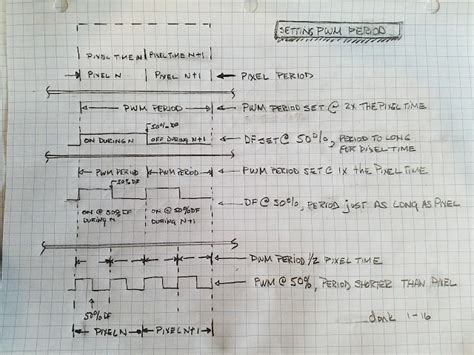 SETTING PWM PERIOD
PIXEL TIME N PIXEL TIME N+1
PIXEL N PIXEL N+1 PIXEL PERIOD
PWM PERIOD PWM PERIOD SET @ 2X THE PIXEL TIME
50% DF
ON DURING N OFF DURING N+1 DF SET @ 50%, PERIOD TO LONG
FOR PIXEL TIME
PWM PERIOD PWM PERIOD PWM PERIOD SET @ 1X THE PIXEL TIME
50% DF
ON @ 50% DF ON @ 50% DF DF @ 50%, PERIOD JUST AS LONG AS PIXEL
DURING N DURING N+1
PWM PERIOD 1/2 PIXEL TIME
PWM @ 50%, PERIOD SHORTER THAN PIXEL
50% DF
PIXEL N PIXEL N+1
1-16